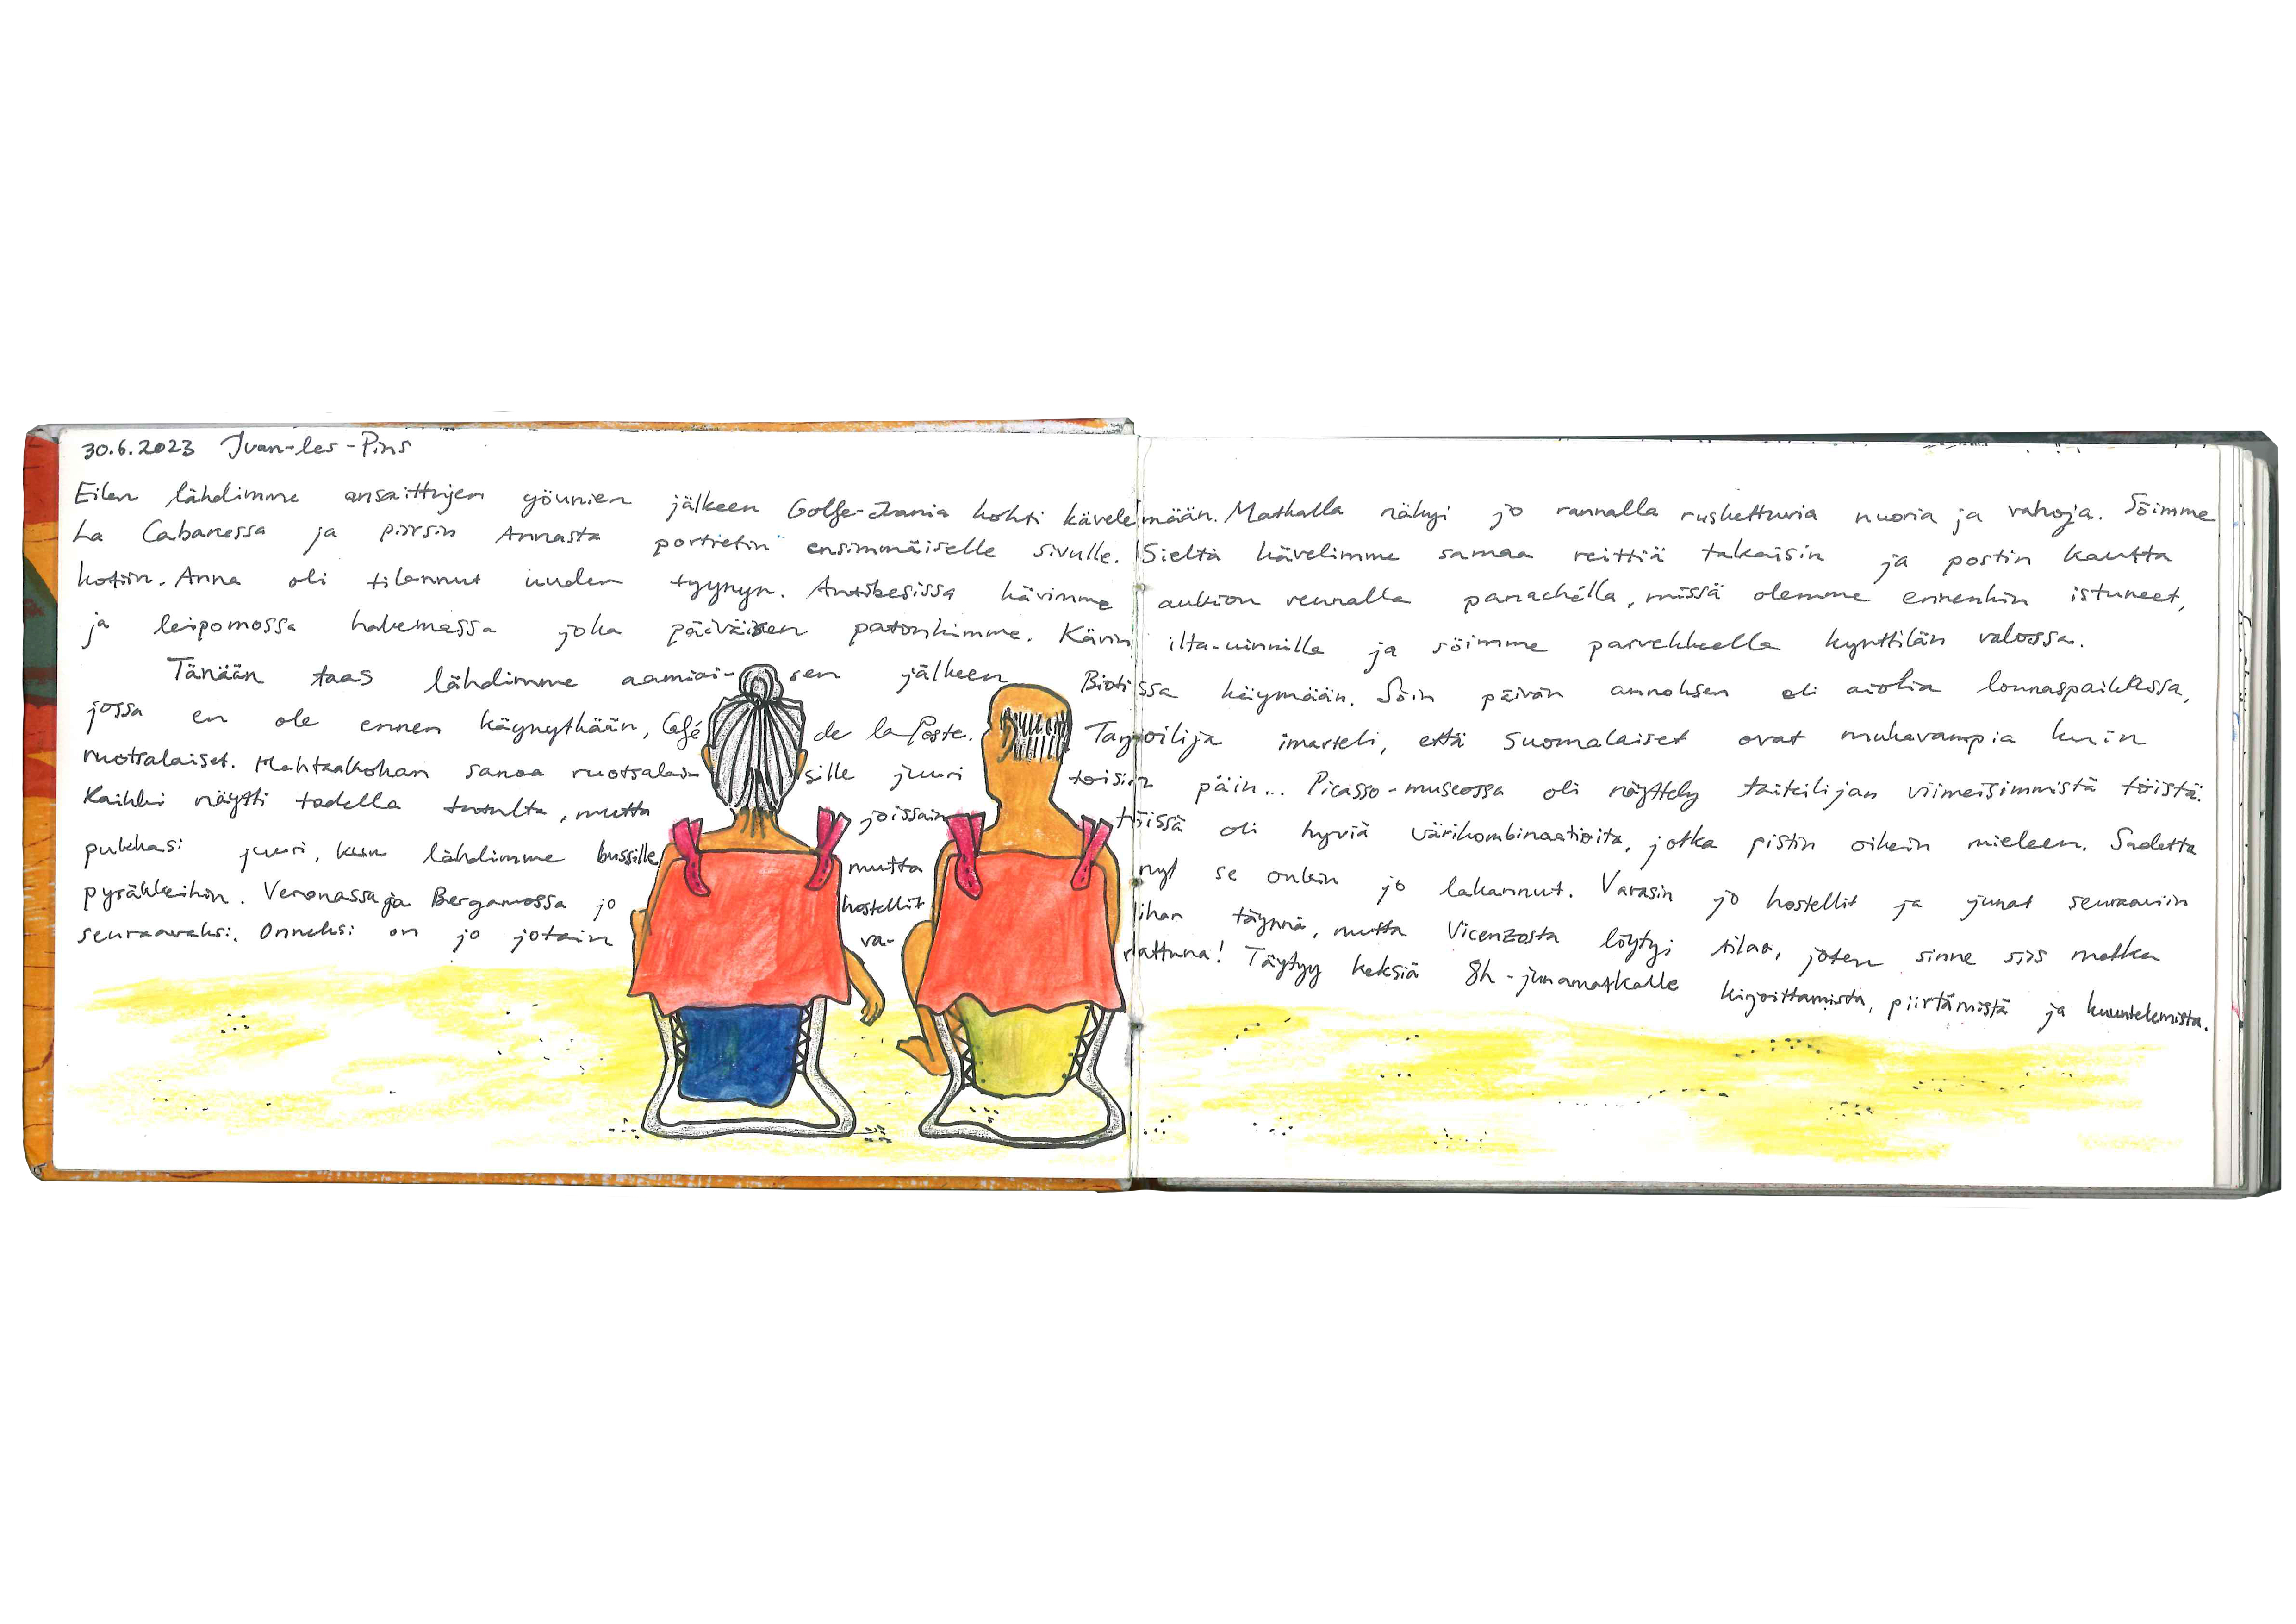 30.6.2023 Juan-les-Pins
Eilen lähdimme ansaittujen yöunien jälkeen Golfe-Juania kohti kävelemään. Matkalla näkyi jo rannalla ruskettuvia nuoria ja vanhoja. Söimme
La Cabanessa ja piirsin Annasta portretin ensimmäiselle sivulle. Sieltä kävelimme samaa reittiä takaisin ja postin kautta
kotiin. Anna oli tilannut uuden tyynyn. Antibesissa kävimme aukion reunalla panachélla, missä olemme ennenkin istuneet,
ja leipomossa hakemassa joka päiväisen patonkimme. Kävin ilta-uinnilla ja söimme parvekkeella kynttilän valossa.
Tänään taas lähdimme aamiaisen jälkeen Biotissa käymään. Söin päivän annoksen eli aiolia lounaspaikassa,
jossa en ole ennen käynytkään, Café de la Poste. Tarjoilija imarteli, että suomalaiset ovat mukavampia kuin
ruotsalaiset. Mahtaakohan sanoa ruotsalaisille juuri toisin päin... Picasso-museossa oli näyttely taiteilijan viimeisimmistä töistä.
Kaikki näytti todella tutulta, mutta joissain töissä oli hyviä värikombinaatioita, jotka pistin oikein mieleen. Sadetta
pukkasi juuri, kun lähdimme bussille, mutta nyt se onkin jo lakannut. Varasin jo hostellit ja junat seuraaviin
pysäkkeihin. Veronassa ja Bergamossa jo hostellit lihan täynnä, mutta Vicenzasta löytyi tilaa, joten sinne siis matka
seuraavaksi. Onneksi on jo jotain va-rattuna! Täytyy keksiä 8h-junamatkalle kirjoittamista, piirtämistä ja kuuntelemista.